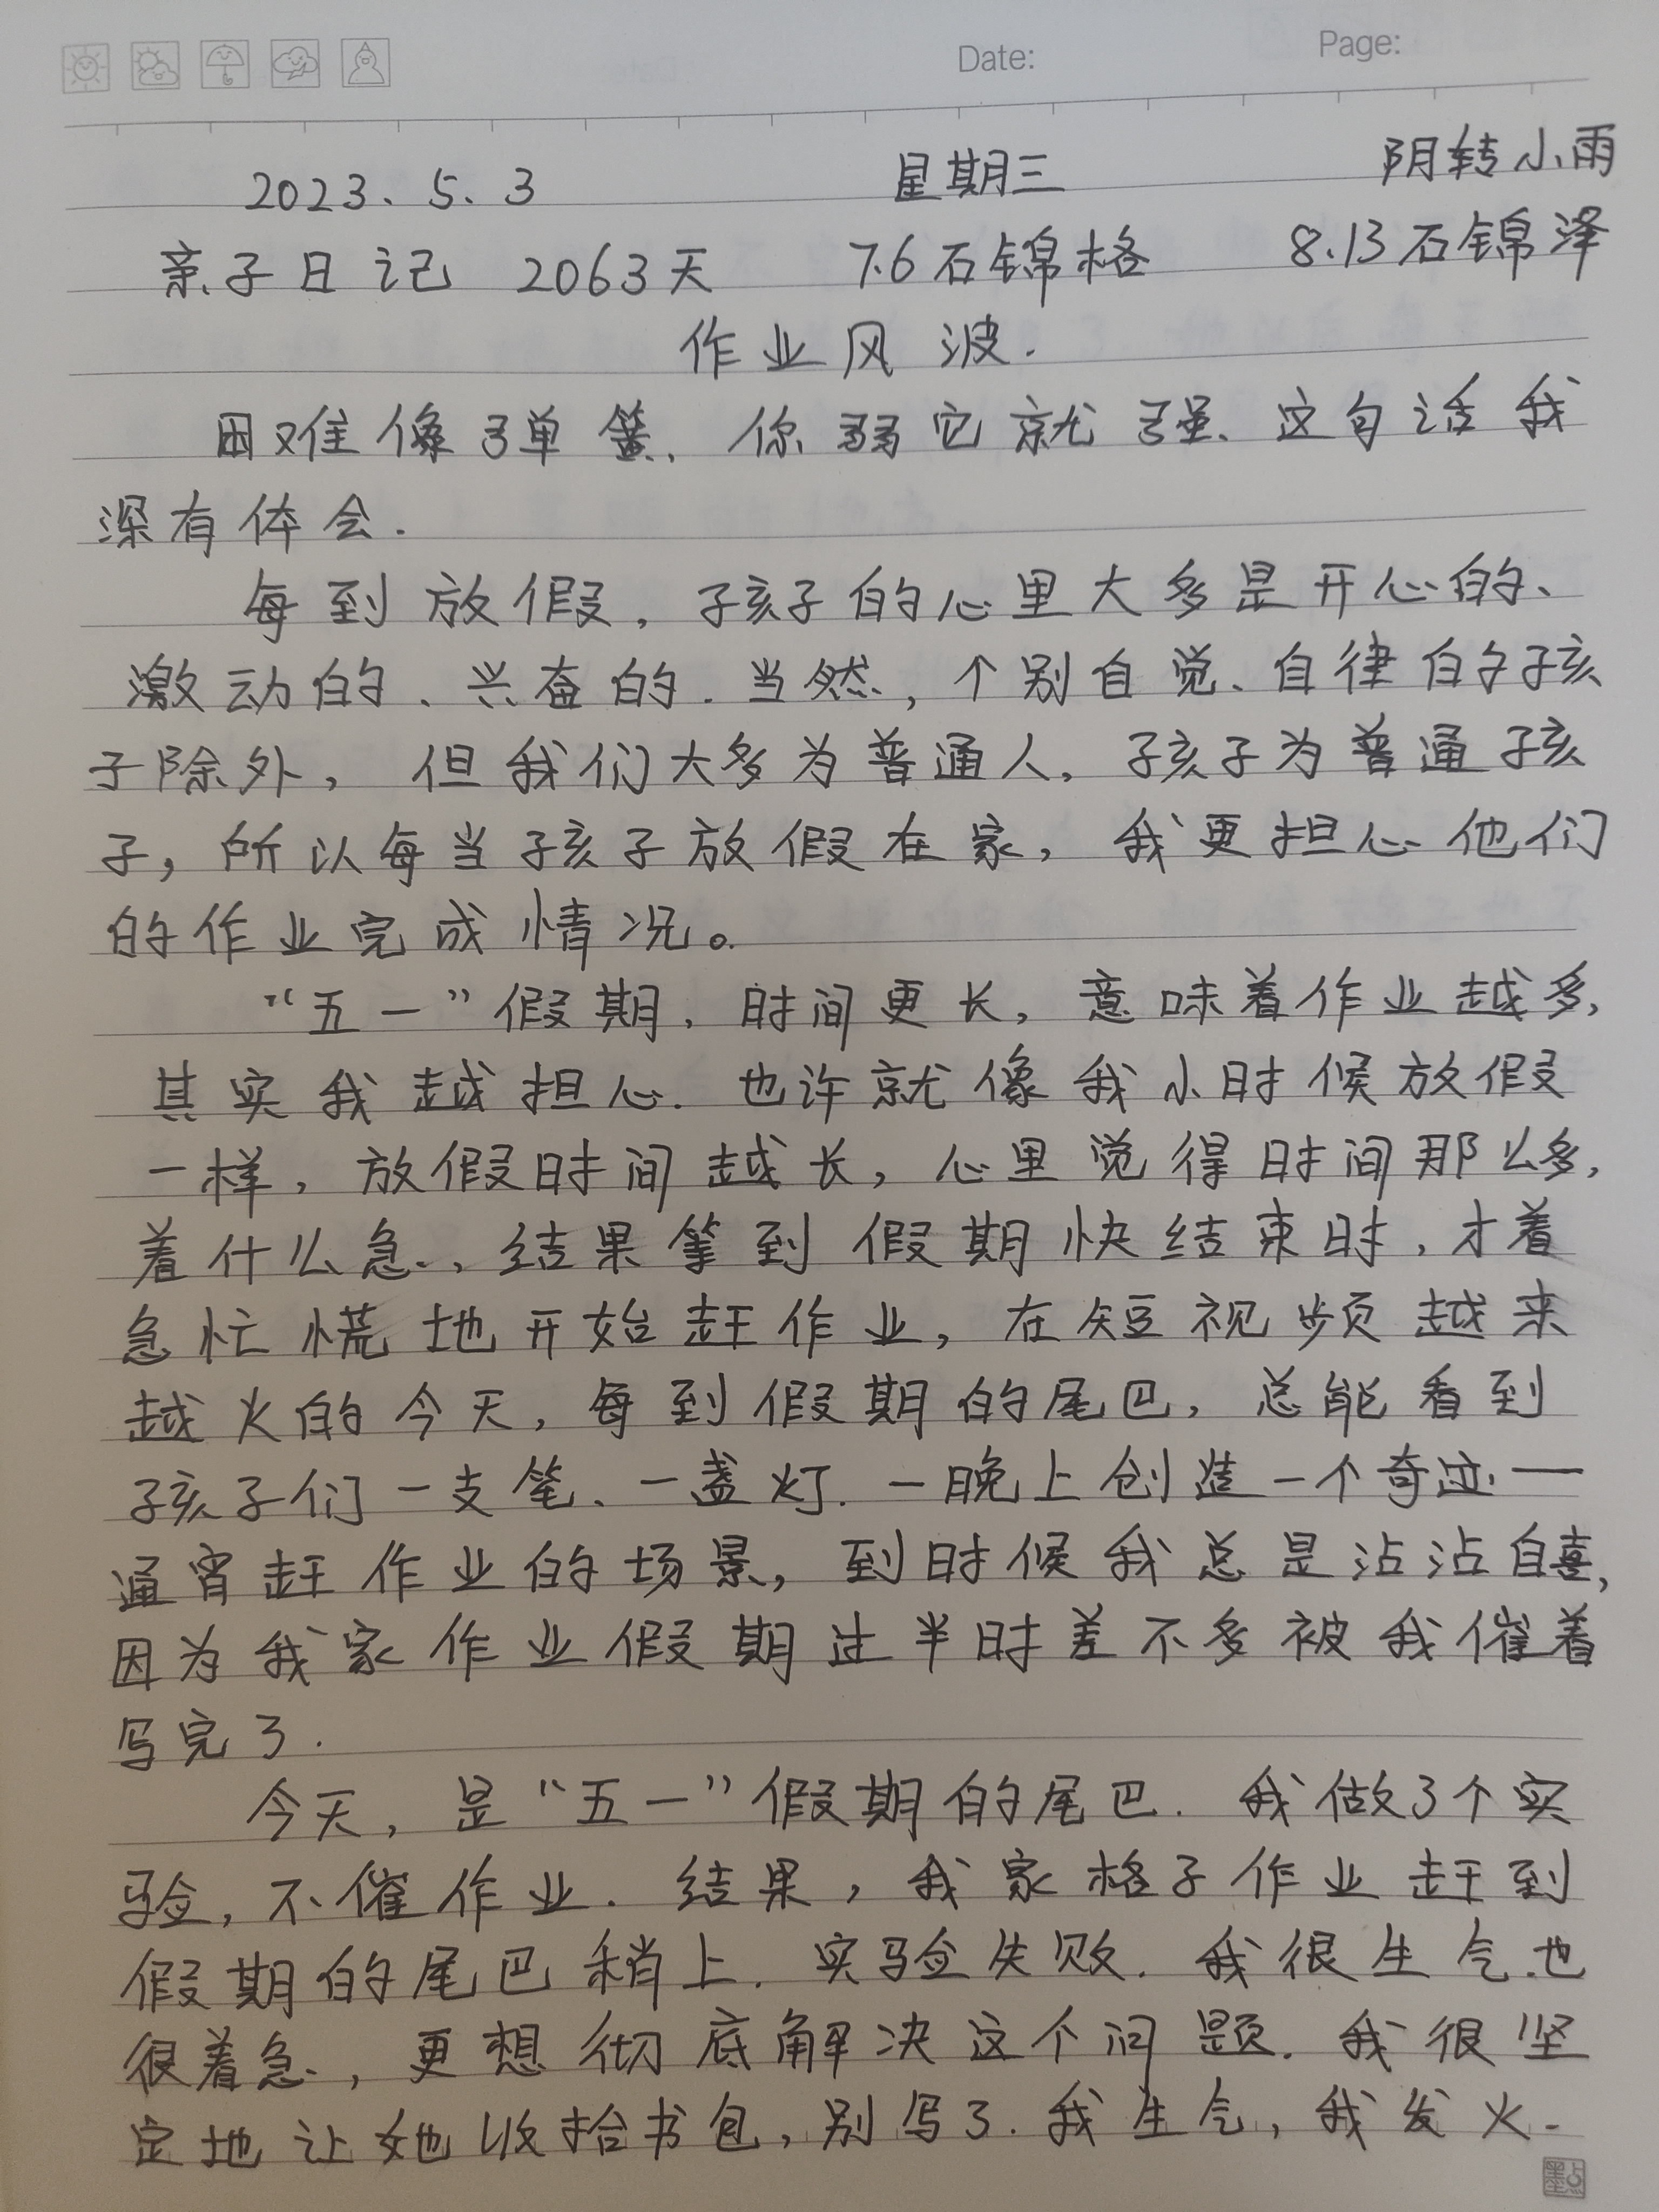 Date: Page:
2023.5.3 星期三 阴转小雨
亲子日记 2063天 7.6石锦格 8.13石锦泽
作业风波.
困难像弹簧、你弱它就强、这句话我
深有体会.
每到放假，孩子的心里大多是开心的、
激动的、兴奋的.当然，个别自觉、自律的孩
子除外，但我们大多为普通人，孩子为普通孩
子，所以每当孩子放假在家，我更担心他们
的作业完成情况。
“五一”假期，时间更长，意味着作业越多，
其实我越担心.也许就像我小时候放假
一样，放假时间越长，心里觉得时间那么多，
着什么急、结果等到假期快结束时，才着
急忙慌地开始赶作业，在短视频越来
越火的今天，每到假期的尾巴，总能看到
孩子们一支笔、一盏灯.一晚上创造一个奇迹——
通宵赶作业的场景，到时候我总是沾沾自喜，
因为我家作业假期过半时差不多被我催着
写完了.
今天，是“五一”假期的尾巴.我做了个实
验，不催作业.结果，我家格子作业赶到
假期的尾巴稍上.实验失败.我很生气.也
很着急，更想彻底解决这个问题.我很坚
定地让她收拾书包，别写了.我生气，我发火.
墨点